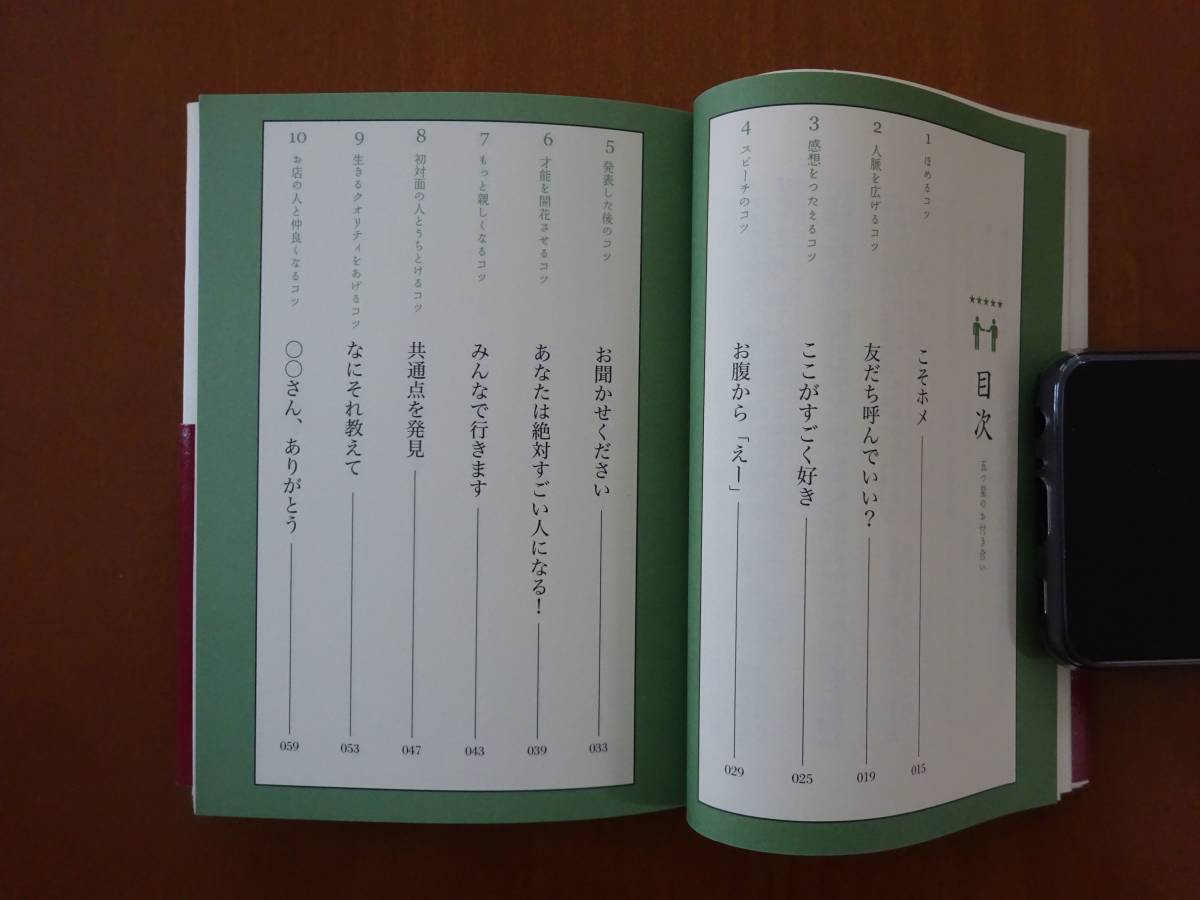 ★★★★★
目次
五つ星のお付き合い
1 ほめるコツ
こそホメ 015
2 人脈を広げるコツ
友だち呼んでいい？ 019
3 感想をつたえるコツ
ここがすごく好き 025
4 スピーチのコツ
お腹から「えー」 029
5 発表した後のコツ
お聞かせください 033
6 才能を開花させるコツ
あなたは絶対すごい人になる！ 039
7 もっと親しくなるコツ
みんなで行きます 043
8 初対面の人とうちとけるコツ
共通点を発見 047
9 生きるクオリティをあげるコツ
なにそれ教えて 053
10 お店の人と仲良くなるコツ
〇〇さん、ありがとう 059